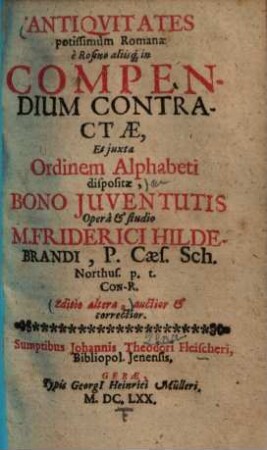 ANTIQVITATES
potissimum Romanæ
è Rosino aliisq́; in
COMPEN-
DIUM CONTRA-
CTÆ,
Et juxta
Ordinem Alphabeti
dispositæ,
BONO JUVENTUTIS
Operâ & studio
M. FRIDERICI HILDE-
BRANDI, P. Cæs. Sch.
Northus. p. t.
CON-R.
Editio altera, auctior &
correctior.
Sumptibus Johannis Theodori Fleischeri,
Bibliopol. Jenensis,
GERÆ,
Typis GeorgI Heinrici Mülleri,
M. DC, LXX.